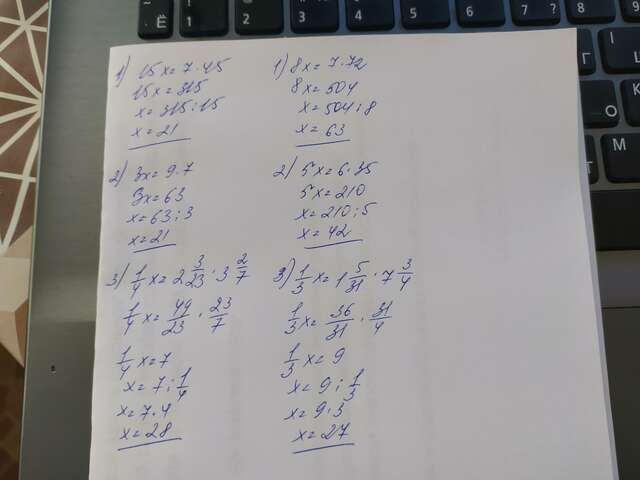 1) 15x=7·45
15x=315
x=315:15
x=21
2) 3x=9·7
3x=63
x=63:3
x=21
3) 1/4 x=2 3/23 · 3 2/7
1/4 x=49/23 · 23/7
1/4 x=7
x=7:1/4
x=7·4
x=28
1) 8x=7·72
8x=504
x=504:8
x=63
2) 5x=6·35
5x=210
x=210:5
x=42
3) 1/3 x=1 5/31 · 7 3/4
1/3 x=36/31 · 31/4
1/3 x=9
x=9:1/3
x=9·3
x=27